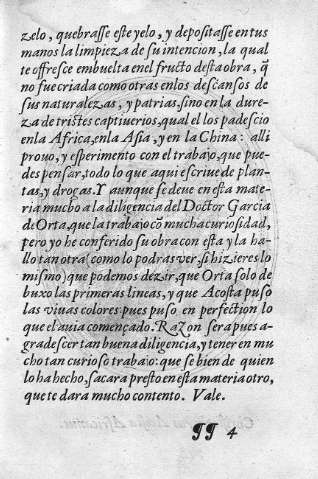 zelo, quebrasse este yelo, y depositasse en tus
manos la limpieza de su intencion, la qual
te offresce embuelta enel fructo desta obra, q̃
no fue criada como otras enlos descansos de
sus naturalezas, y patrias, sino en la dure-
za de tristes captiuerios, qual el los padescio
enla Africa, enla Asia, y en la China: alli
prouo, y esperimento con el trabajo, que pue-
des pensar, todo lo que aqui escriue de plan-
tas, y drogas. Y aunque se deue en esta mate-
ria mucho a la diligencia del Doctor Garcia
de Orta, que la trabajo cõ mucha curiosidad,
pero yo he conferido su obra con esta y la ha-
llo tan otra (como lo podras ver, si hizieres lo
mismo) que podemos dezir, que Orta solo de
buxo las primeras lineas, y que Acosta puso
las viuas colores: pues puso en perfection lo
que el auia començado. Razon sera pues a-
gradescer tan buena diligencia, y tener en mu
cho tan curioso trabajo: que se bien de quien
lo ha hecho, sacara presto en esta materia otro,
que te dara mucho contento. Vale.
¶¶ 4